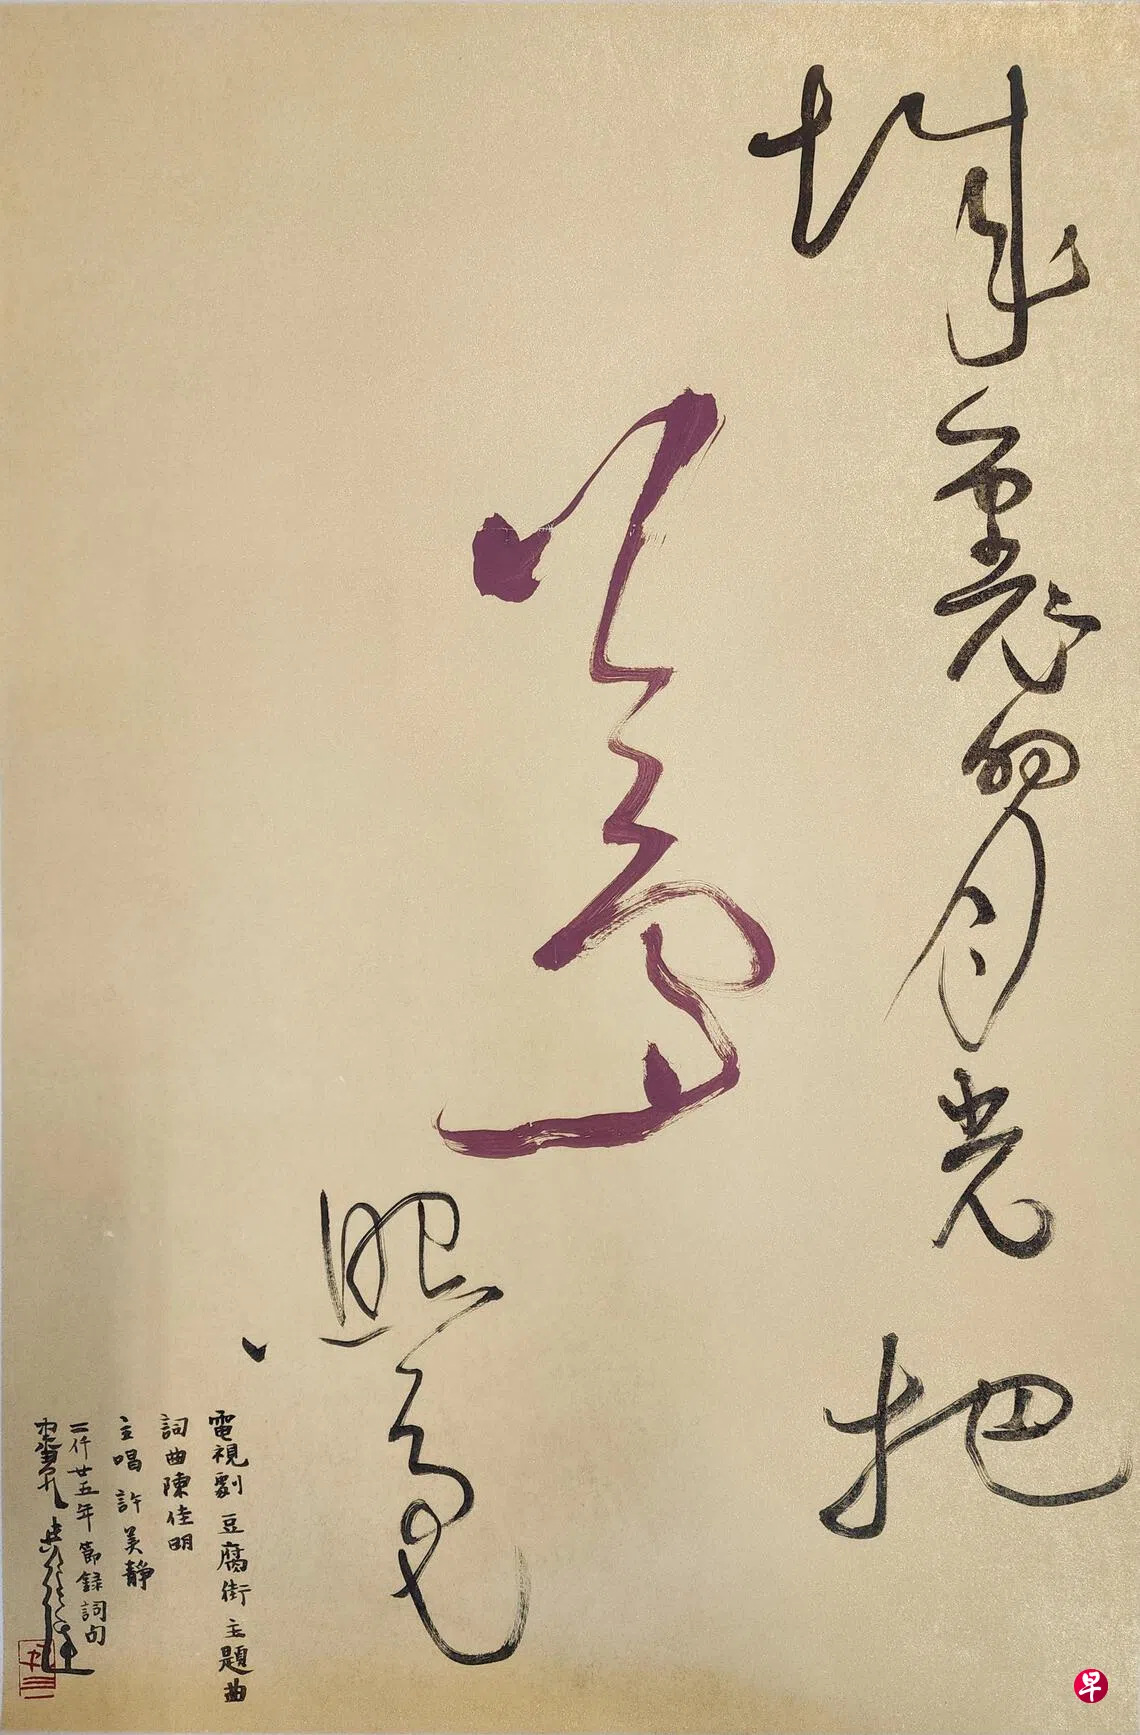 城裏的月光把
夢
照亮
電視劇 豆腐街 主題曲
詞曲陳佳明
主唱 許美靜
二仟廿五年 節録詞句
早